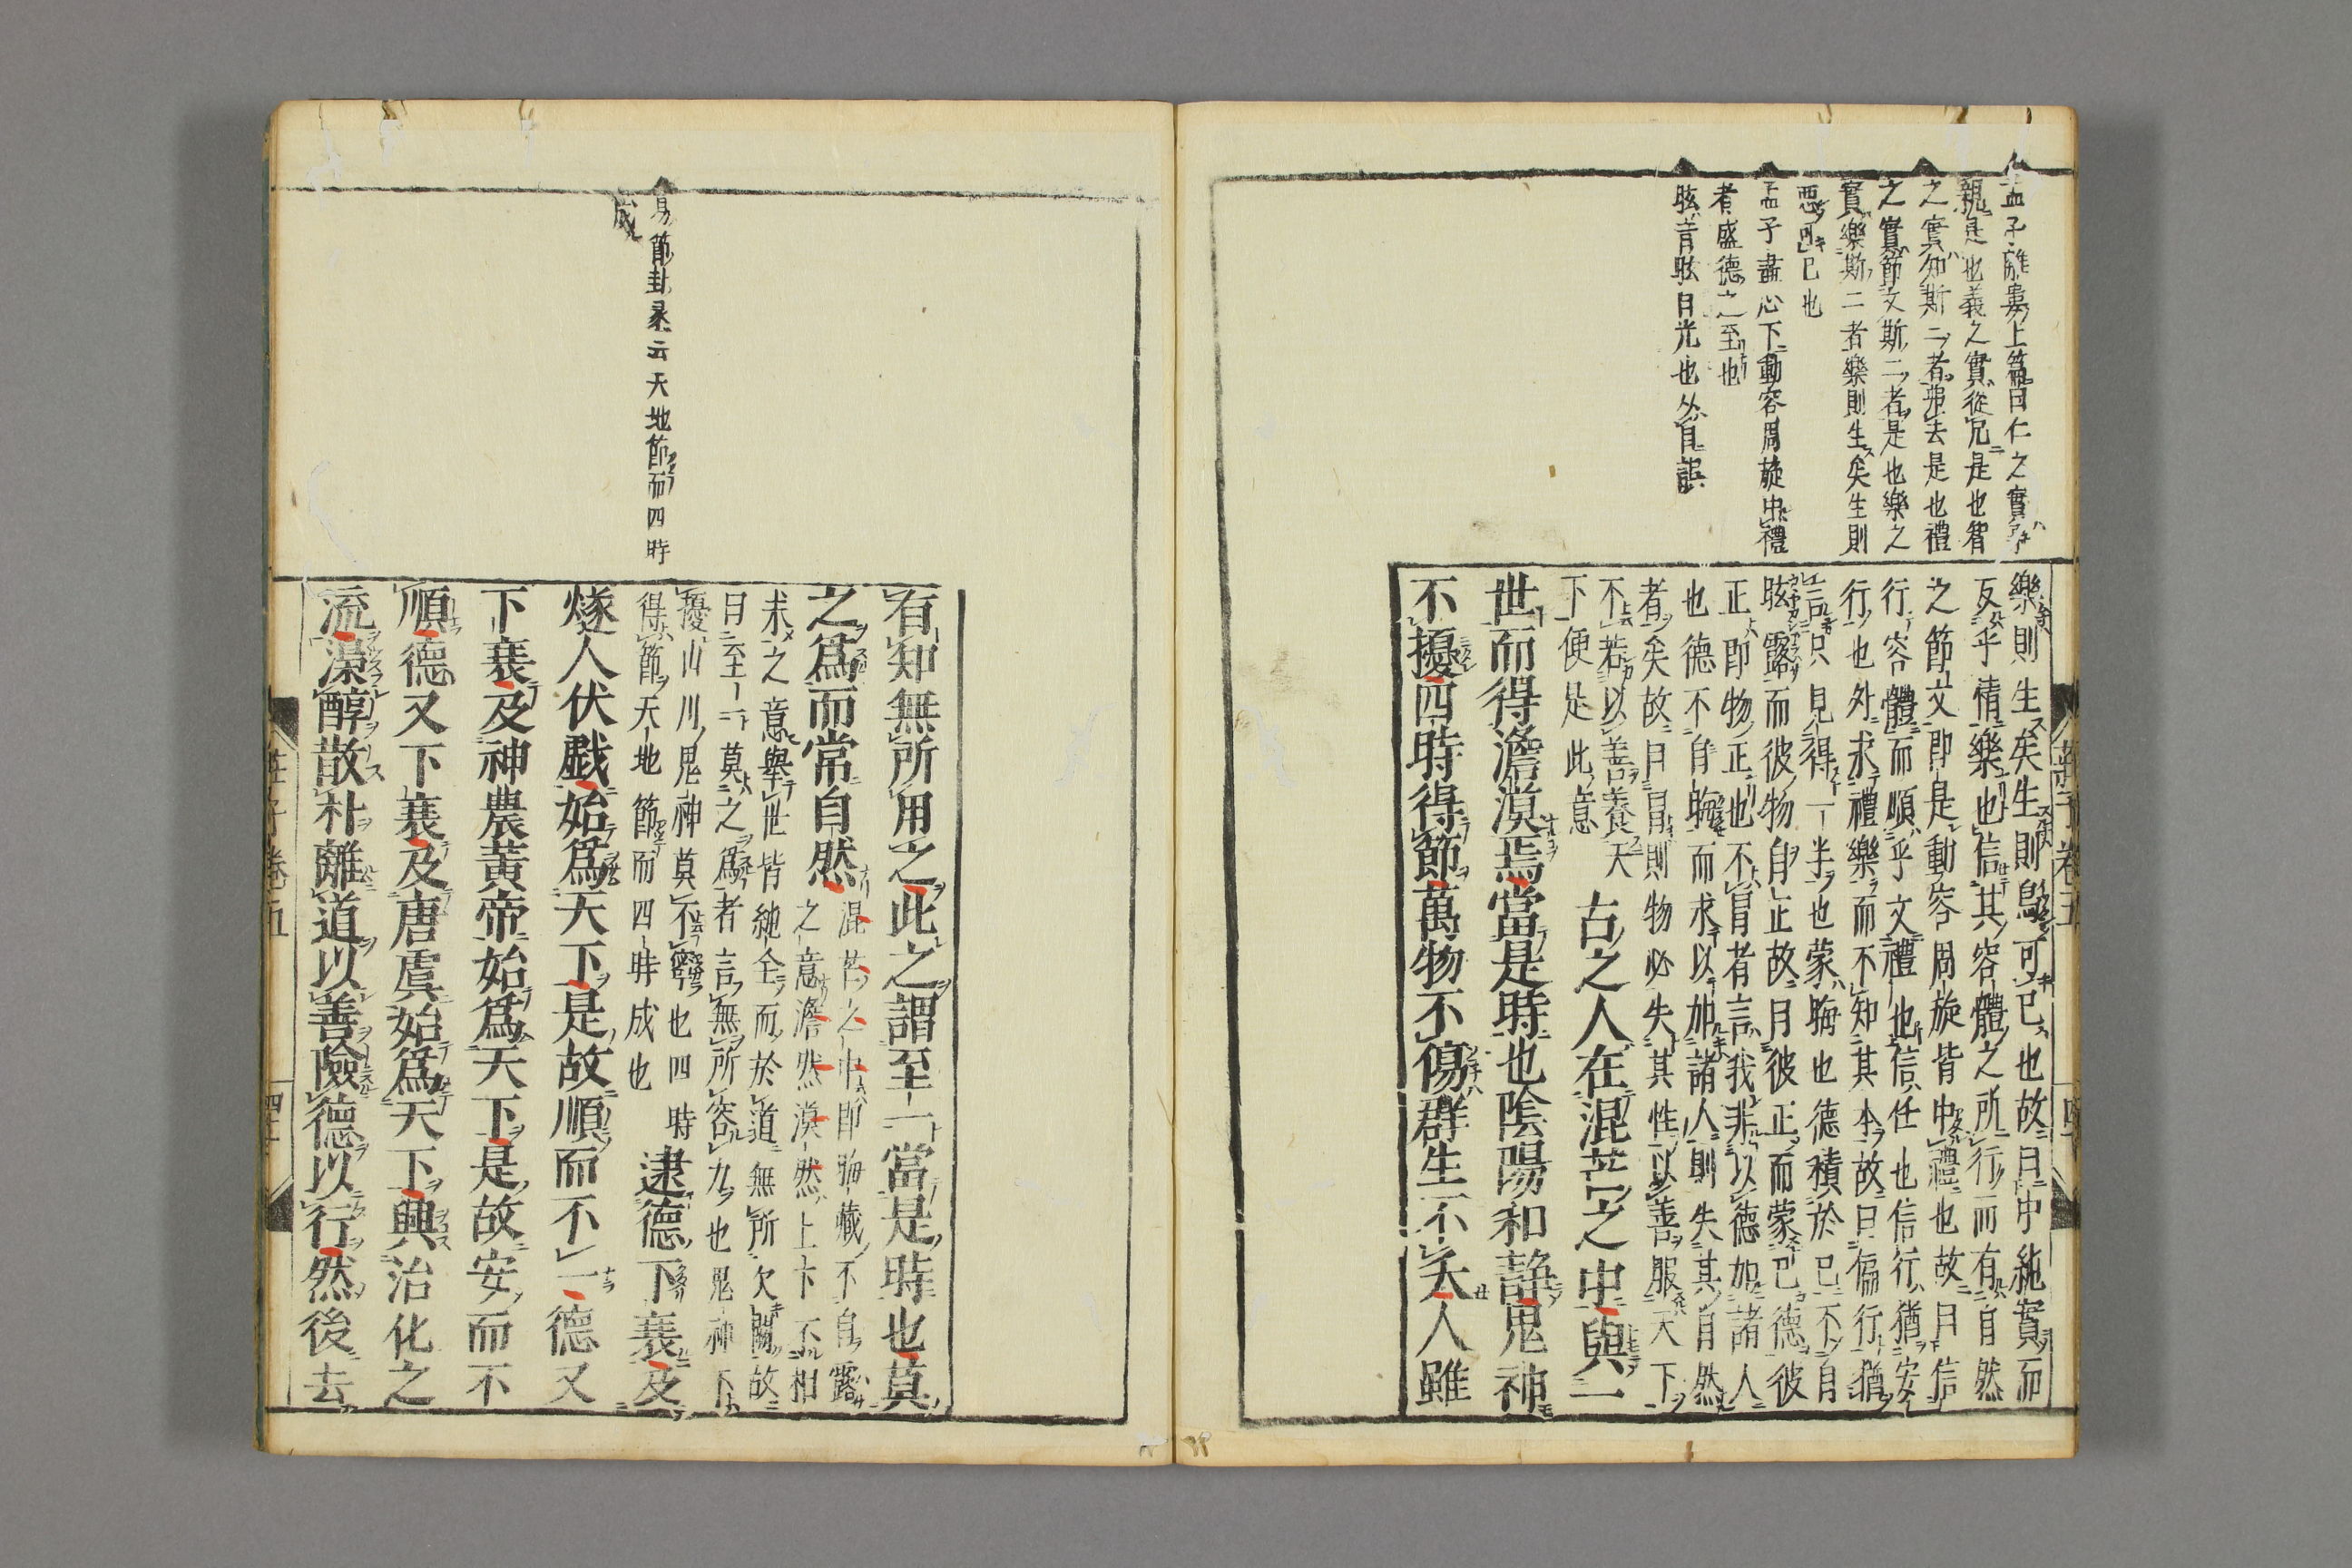 孟子離婁上篇曰仁之實事
親是也義之實從兄是也智
之實知斯二者弗去是也禮
之實節文斯二者是也樂之
實樂斯二者樂則生矣生則
惡可已也
孟子盡心下動容周旋中禮
者盛德之至也
眩音眩日光也
樂則生矣生則烏可已也故曰中純實而
反乎情樂也信其容體之所行而有自然
之節文即是動容周旋皆中禮也故曰信
行容體而順乎文禮也信任也信行猶安
行也外求禮樂而不知其本故曰偏行猶
言只見得一半也蒙晦也德積於已不自
眩露而彼物自正故曰彼正而蒙已德彼
正即物正也不冒者言我非以德加諸人
也德不自晦而求以加諸人則失其自然
者矣故曰冒則物必失其性以善服天下
不若以善養天
下便是此意
古之人在混芒之中與一
世而得澹漠焉當是時也陰陽和靜鬼神
不擾四時得節萬物不傷群生不夭人雖
莊子卷五
易節卦彖云天地節而四時
成
有知無所用之此之謂至一當是時也莫
之爲而常自然
混芒之中即晦藏不自露
之意澹然漠然上下不相
求之意舉世皆純全而於道無所欠闕故
曰至一莫之爲者言無所容力也鬼神不
擾山川鬼神莫不寧也四時
得節天地節而四時成也
逮德下衰及
燧人伏戯始爲天下是故順而不一德又
下衰及神農黃帝始爲天下是故安而不
順德又下衰及唐虞始爲天下興治化之
流澆醇散朴離道以善險德以行然後去
莊子卷五